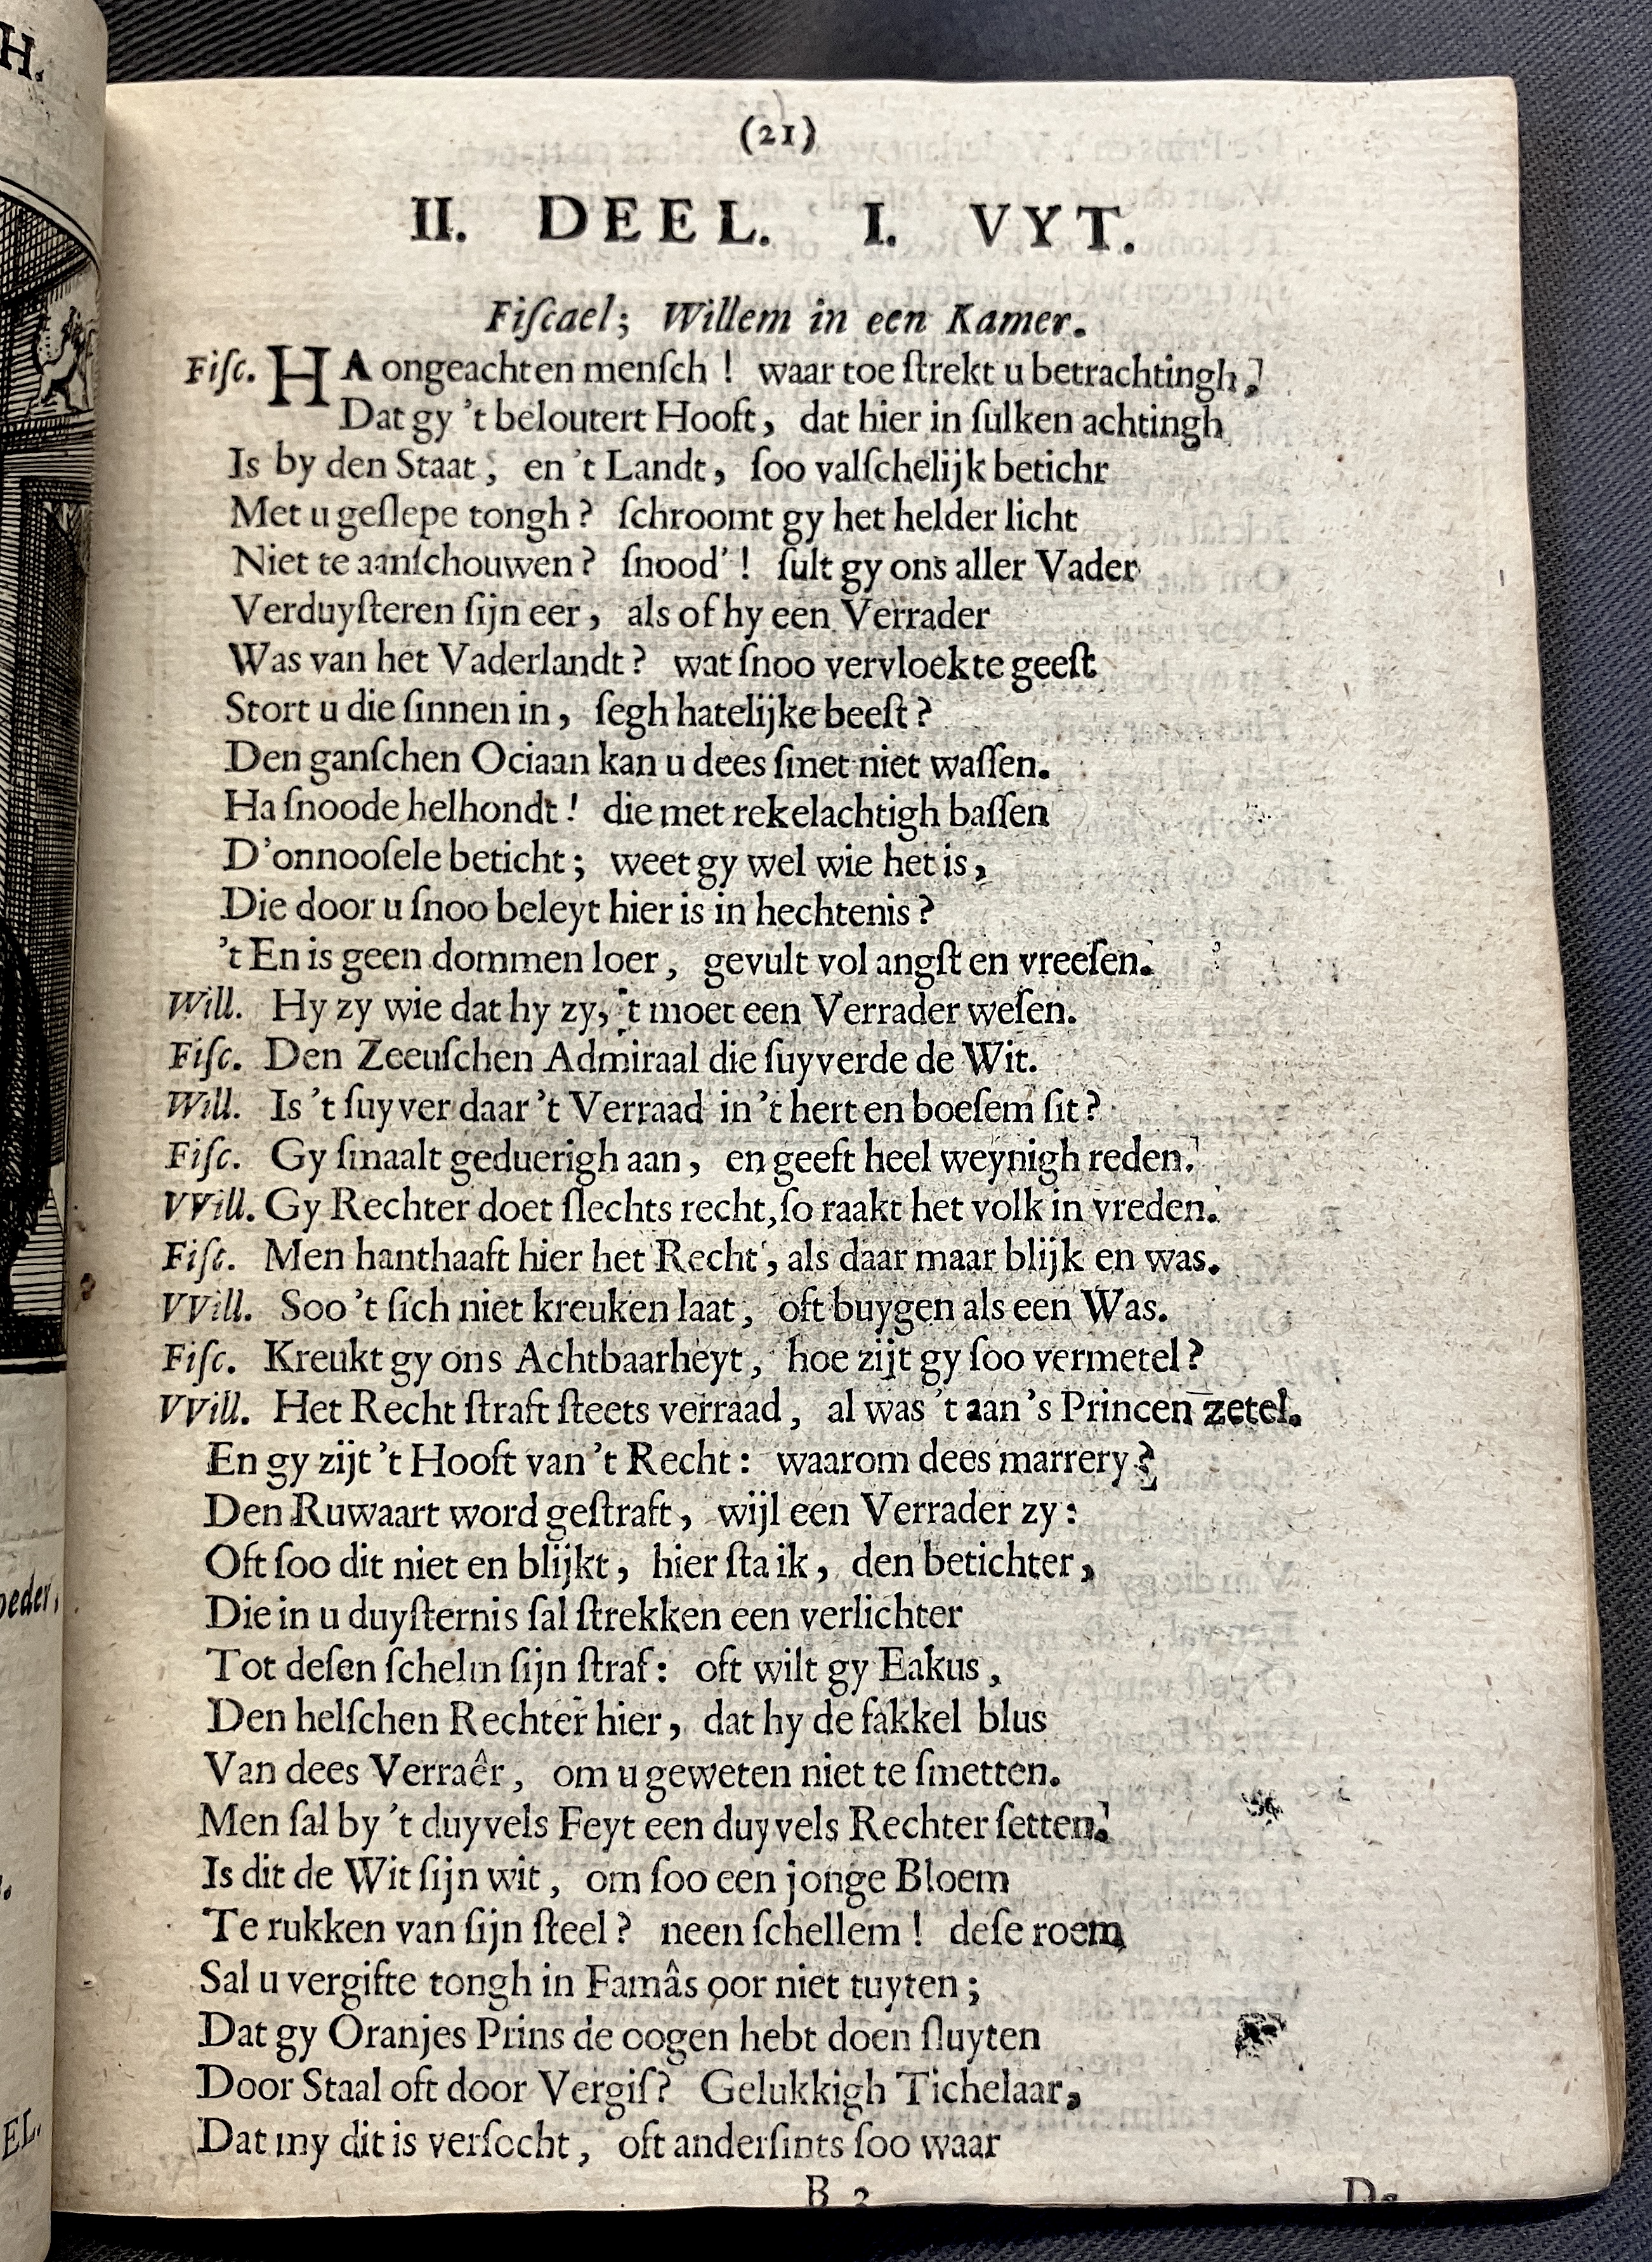 H.
(21)
II. DEEL. I. VYT.
Fiſcael; Willem in een Kamer.
Fiſc. HA ongeachten menſch! waar toe ſtrekt u betrachtingh,
Dat gy 't beloutert Hooft, dat hier in ſulken achtingh
Is by den Staat, en 't Landt, ſoo valſchelijk betichr
Met u geſlepe tongh? ſchroomt gy het helder licht
Niet te aanſchouwen? ſnood'! ſult gy ons aller Vader
Verduyſteren ſijn eer, als of hy een Verrader
Was van het Vaderlandt? wat ſnoo vervloekte geeſt
Stort u die ſinnen in, ſegh hatelijke beeſt?
Den ganſchen Ociaan kan u dees ſmet niet waſſen.
Ha ſnoode helhondt! die met rekelachtigh baſſen
D'onnooſele beticht; weet gy wel wie het is,
Die door u ſnoo beleyt hier is in hechtenis?
't En is geen dommen loer, gevult vol angſt en vreeſen.
Will. Hy zy wie dat hy zy, 't moet een Verrader weſen.
Fiſc. Den Zeeuſchen Admiraal die ſuyverde de Wit.
Will. Is 't ſuyver daar 't Verraad in 't hert en boeſem ſit?
Fiſc. Gy ſmaalt geduerigh aan, en geeft heel weynigh reden.
VVill. Gy Rechter doet ſlechts recht, ſo raakt het volk in vreden.
Fiſc. Men hanthaaft hier het Recht, als daar maar blijk en was.
VVill. Soo 't ſich niet kreuken laat, oft buygen als een Was.
Fiſc. Kreukt gy ons Achtbaarheyt, hoe zijt gy ſoo vermetel?
VVill. Het Recht ſtraft ſteets verraad, al was 't aan 's Princen zetel.
En gy zijt 't Hooft van 't Recht: waarom dees marrery?
Den Ruwaart word geſtraft, wijl een Verrader zy:
Oft ſoo dit niet en blijkt, hier ſta ik, den betichter,
Die in u duyſternis ſal ſtrekken een verlichter
Tot deſen ſchelm ſijn ſtraf: oft wilt gy Eakus,
Den helſchen Rechter hier, dat hy de fakkel blus
Van dees Verraêr, om u geweten niet te ſmetten.
Men ſal by 't duyvels Feyt een duyvels Rechter ſetten.
Is dit de Wit ſijn wit, om ſoo een jonge Bloem
Te rukken van ſijn ſteel? neen ſchellem! deſe roem
Sal u vergifte tongh in Famâs oor niet tuyten;
Dat gy Oranjes Prins de oogen hebt doen ſluyten
Door Staal oft door Vergif? Gelukkigh Tichelaar,
Dat my dit is verſocht, oft anderſints ſoo waar
B 3
oeder,
EL.